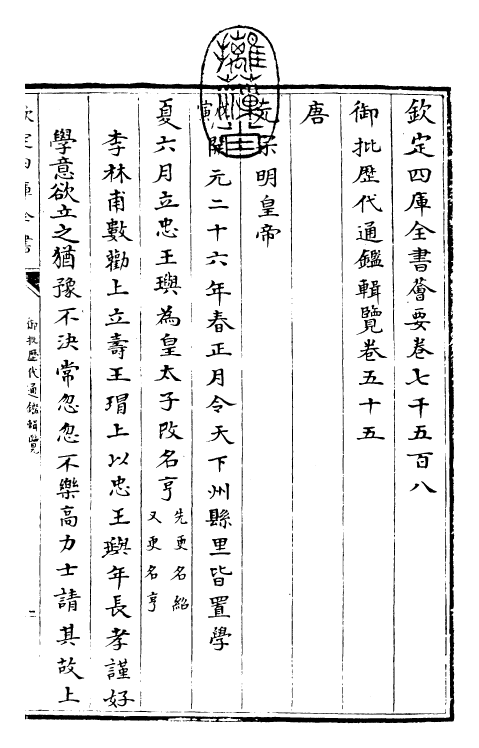 欽定四庫全書薈要卷七千五百八
御批歷代通鑑輯覽卷五十五
唐
元宗明皇帝
寅開元二十六年春正月令天下州縣里皆置學
夏六月立忠王璵為皇太子改名亨先更名紹又更名亨
李林甫數勸上立壽王瑁上以忠王璵年長孝謹好
學意欲立之猶豫不決常忽忽不樂高力士請其故上
欽定四庫全書
御批歷代通鑑輯覽